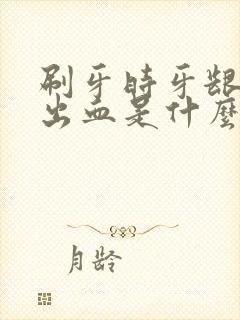 刷牙時牙齦
出血是什麼
月龄